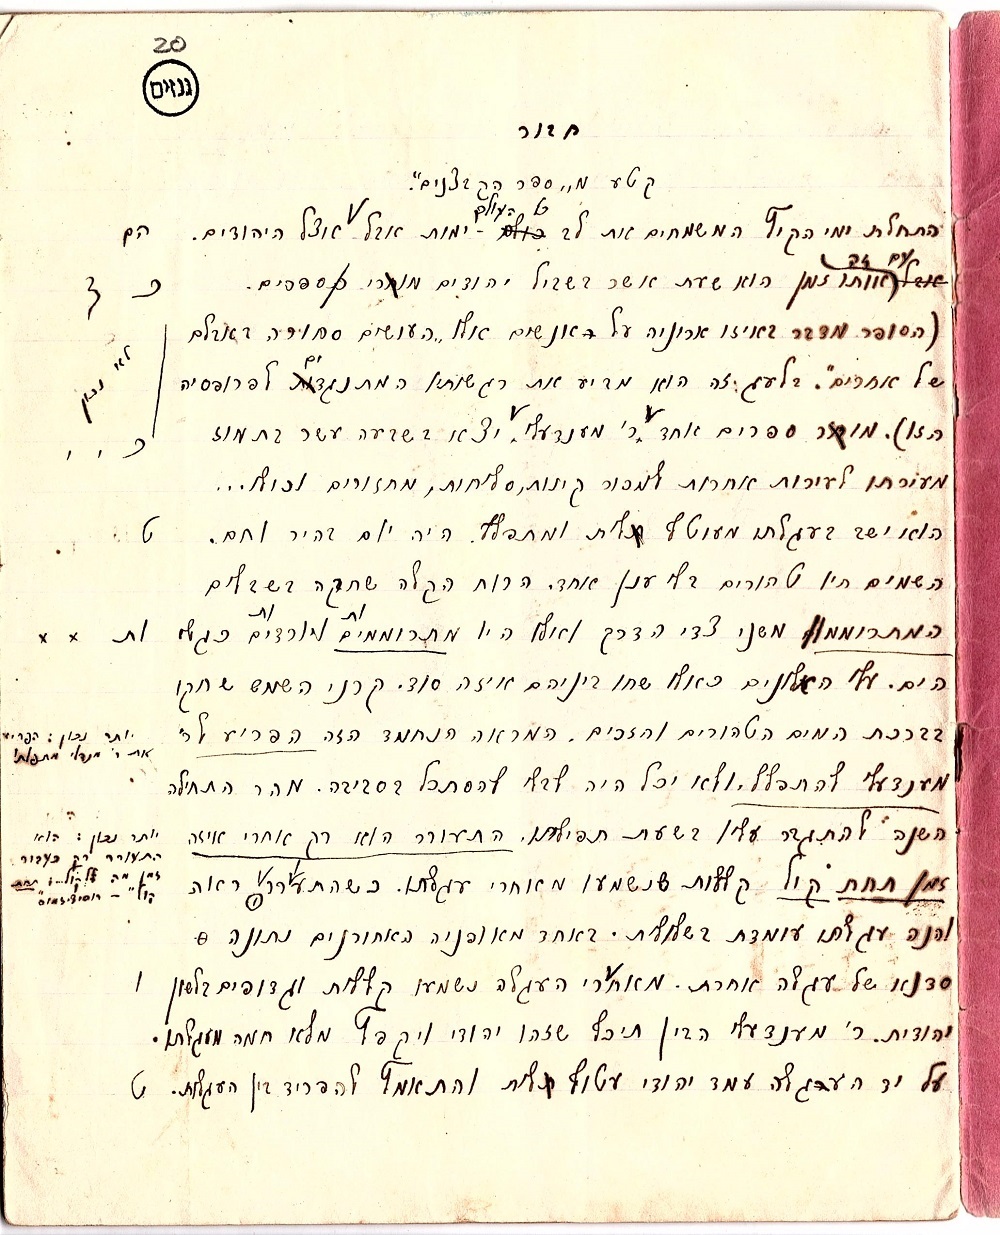 20
גנזים
חבור
קטע מ„ספר הקבצנים".
התחלת ימי הקיץ המשמחים את לב העולם - ימות אבל אצל היהודים. הם
אותו זמן הוא שעת אשר בשביל יהודים מוכרי ספרים.
(הסופר מדבר באיזו ארוניה על אנשים אלו, „העושים סחורה באבלם
של אחרים". בלעג זה הוא מביע את רגשותיו המתנגדים לפרופסיה
לא נכון
הזו). מוכר ספרים אחד ר' מענדעלי יצא בשבעה עשר בתמוז
מעירתו לעירות אחרות למכור קינות, סליחות, מחזורים וכולי...
הוא ישב בעגלתו מעוטף טלית ומתפלל. היה יום בהיר וחם. ט
השמים היו טהורים בלי ענן אחד. הרוח הקלה שחקה בשבלים
המתרוממות משני צדי הדרך ואילו היו מתרוממים ויורדים כגלי ות × ×
הים. עלי האלונים כאילו שחו ביניהם איזה סוד. קרני השמש שחקו
בברכת המים הטהורים והזכים. המראה הנחמד הזה הפריע לר'
יותר נכון: הפריע
את ר' מנדלי מתפלתו
מענדעלי להתפלל, ולא יכל היה לבלי להסתכל בסביבה. מהר התחילה
השנה להתגבר עליו בשעת תפילתו. התעורר הוא רק אחרי איזה
יותר נכון: הוא
התעורר רק כעבור
זמן מה לקול...; תחת
קול" – רוסיציזמוס"
זמן תחת קול קללות שנשמעו מאחורי עגלתו. כשהתעורר ראה
והנה עגלתו עומדת בשלולית. באחד מאופניה האחורנים נתונה
סדנא של עגלה אחרת. מאחורי העגלה נשמעו קללות וגדופים בלשון ו
יהודית. ר' מענדעלי הבין תיכף שזהו יהודי ויקפץ מלא חמה מעגלתו.
על יד העגלה עמד יהודי עטוף טלית והתאמץ להפריד בין העגלות. ט